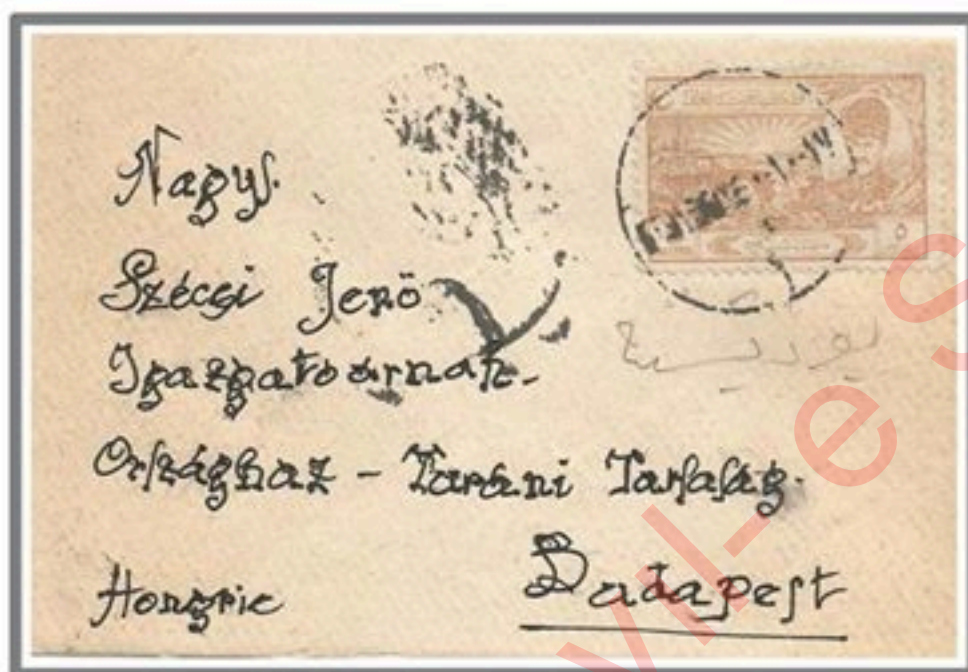 Nagys.
Szécsi Jenő
Igazgatóúrnak-
Országház - Turáni Társaság.
Hongrie
Budapest